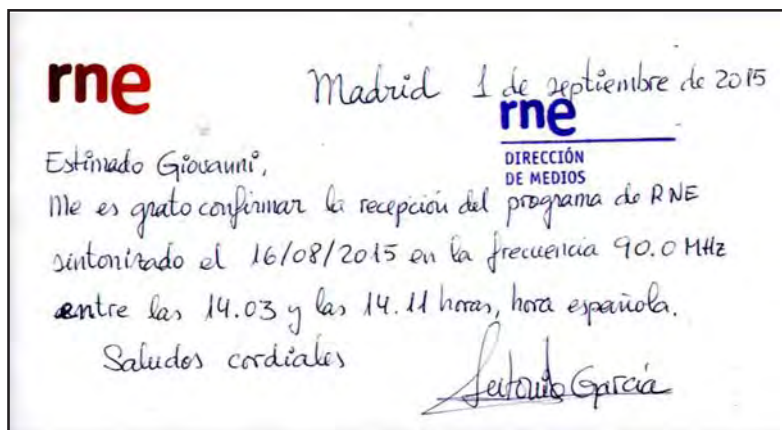 rne
Madrid 1 de septiembre de 2015
rne
DIRECCIÓN
DE MEDIOS
Estimado Giovanni,
Me es grato confirmar la recepción del programa de RNE
sintonizado el 16/08/2015 en la frecuencia 90.0 MHz
entre las 14.03 y las 14.11 horas, hora española.
Saludos cordiales
Antonio García